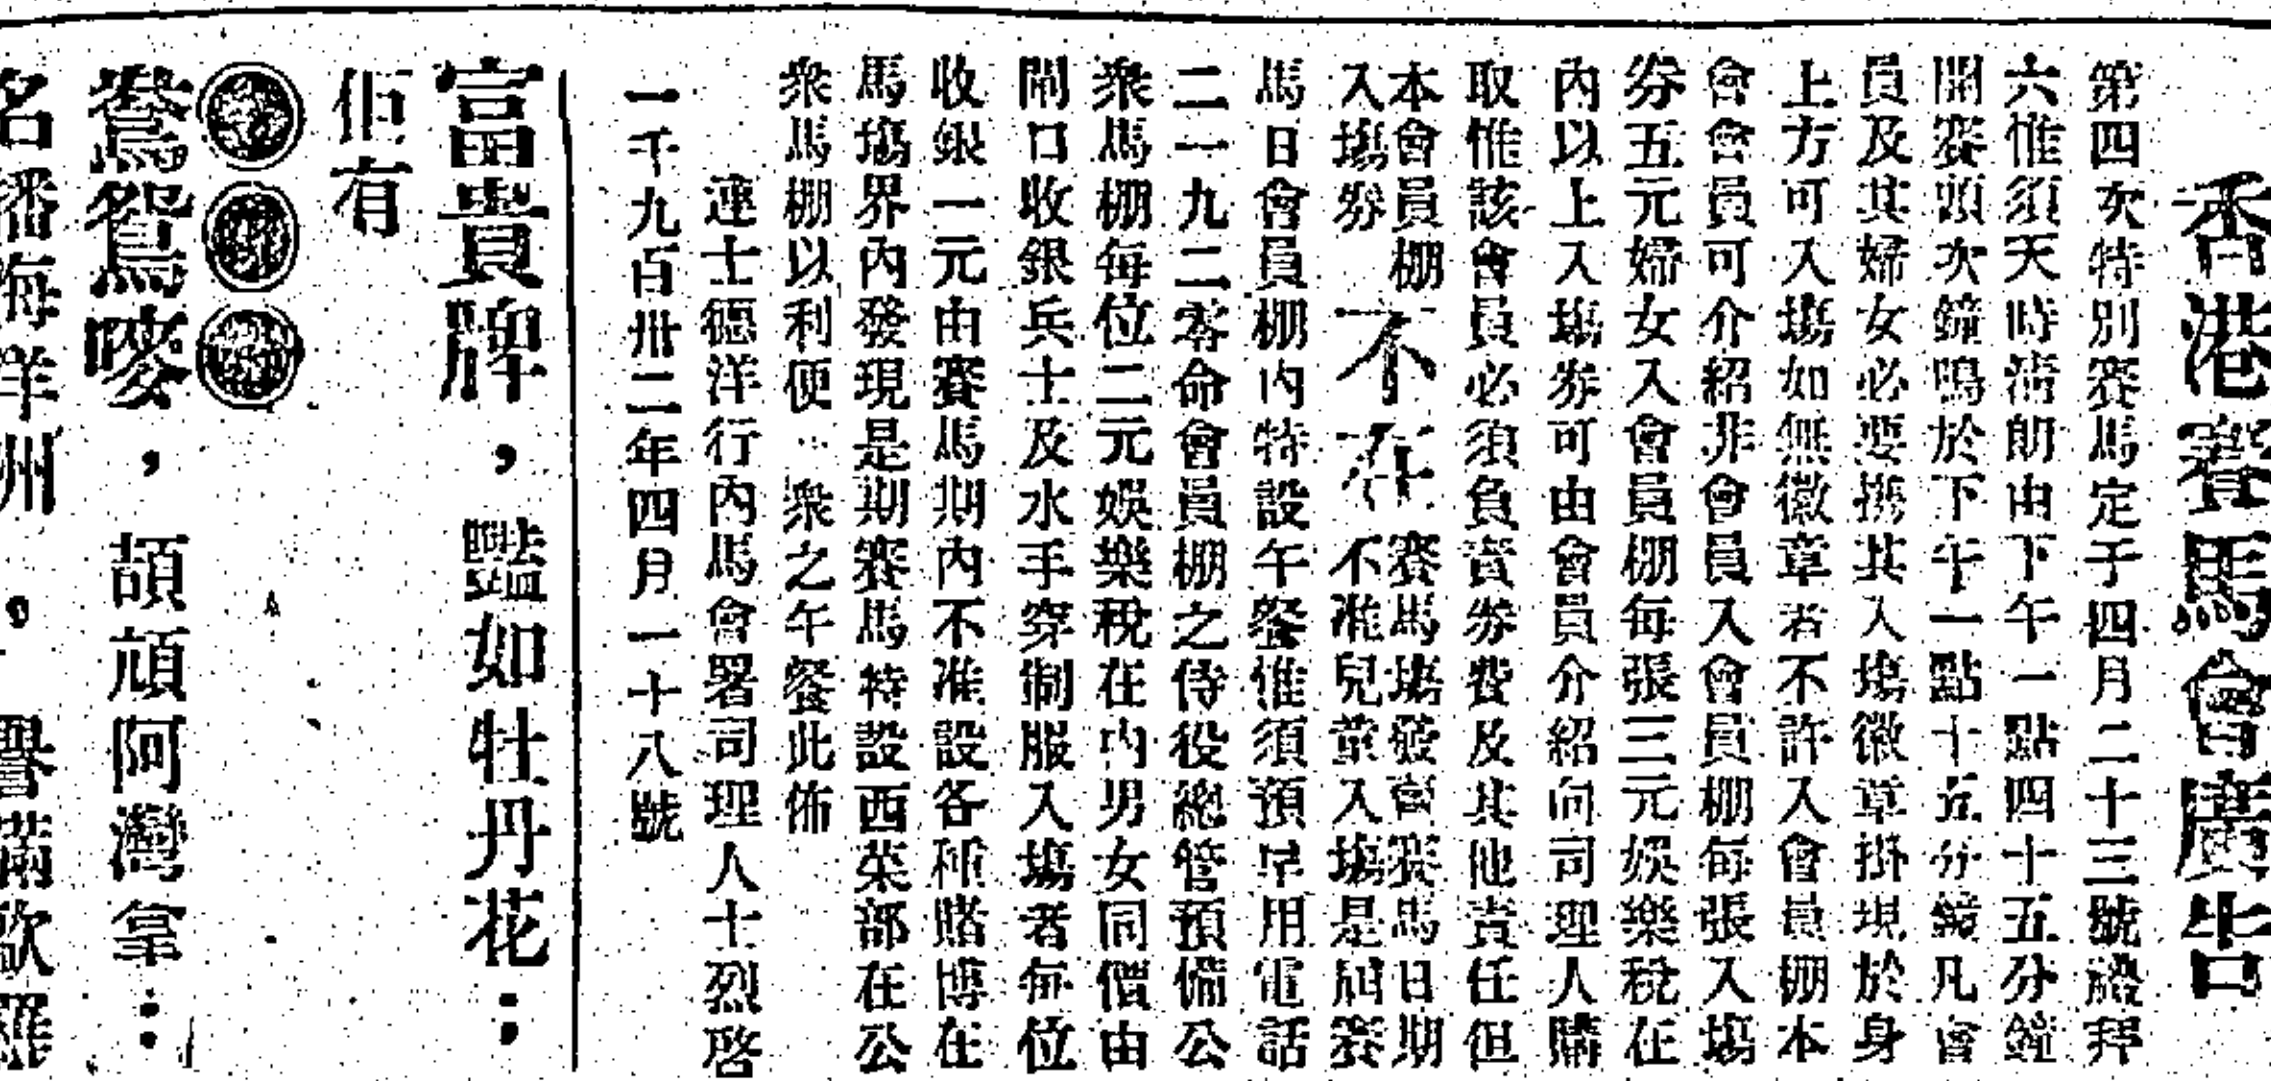 香港賽馬會廣告
第四次特別賽馬定于四月二十三號禮拜
六惟須天時清朗由下午一點四十五分鐘
開賽頭次鐘鳴於下午一點十五分鐘凡會
員及其婦女必要携其入塲徽章掛現於身
上方可入塲如無徽章者不許入會員棚本
會會員可介紹非會員入會員棚每張入塲
券五元婦女入會員棚每張三元娛樂稅在
內以上入塲券可由會員介紹向司理人購
取惟該會員必須負責券費及其他責任但
本會員棚不在賽馬塲發賣賽馬日期
入塲券不准兒童入塲是屆賽
馬日會員棚內特設午餐惟須預早用電話
二一九二零命會員棚之侍役總管預備公
衆馬棚每位二元娛樂稅在內男女同價由
閘口收銀兵士及水手穿制服入塲者每位
收銀一元由賽馬期內不准設各種賭博在
馬塲界內發現是期賽馬特設西菜部在公
衆馬棚以利便衆之午餐此佈
連士德洋行內馬會署司理人士烈啓
一千九百卅二年四月一十八號
富貴牌，豔如牡丹花；
佢有
鴛鴦嘜，頡頏阿灣拿：
名播海洋洲，譽滿歐羅